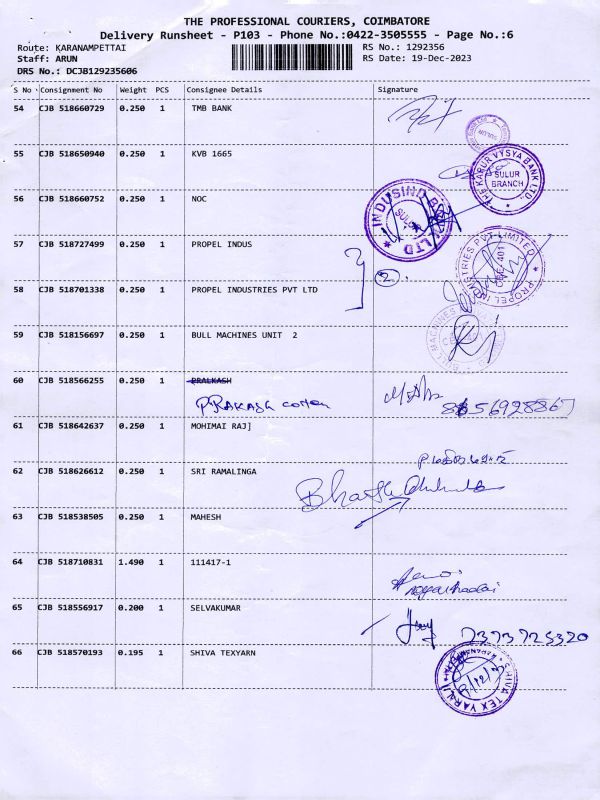 THE PROFESSIONAL COURIERS, COIMBATORE
Delivery Runsheet - P103 - Phone No.:0422-3505555 - Page No.:6
Route: KARANAMPETTAI RS No.: 1292356
Staff: ARUN RS Date: 19-Dec-2023
DRS No.: DCJB129235606
S No Consignment No Weight PCS Consignee Details Signature
54 CJB 518660729 0.250 1 TMB BANK
55 CJB 518650940 0.250 1 KVB 1665
THE KARUR VYSYA BANK LTD.
SULUR
BRANCH
56 CJB 518660752 0.250 1 NOC
INDUSIND BANK LTD
57 CJB 518727499 0.250 1 PROPEL INDUS
PROPEL INDUSTRIES PVT LIMITED
CBE-401
2
58 CJB 518701338 0.250 1 PROPEL INDUSTRIES PVT LTD
59 CJB 518156697 0.250 1 BULL MACHINES UNIT 2
BULL MACHINES
60 CJB 518566255 0.250 1 PRALKASH
PRAKASH cotten
8156928867
61 CJB 518642637 0.250 1 MOHIMAI RAJ]
62 CJB 518626612 0.250 1 SRI RAMALINGA
63 CJB 518538505 0.250 1 MAHESH
64 CJB 518710831 1.490 1 111417-1
65 CJB 518556917 0.200 1 SELVAKUMAR
7373725320
66 CJB 518570193 0.195 1 SHIVA TEXYARN
SHIVA TEX YARN